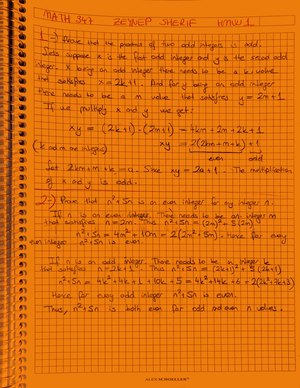 MATH 347 ZEYNEP SHERIF HMW 1
1-) Prove that the product of two odd integers is odd.
Let's suppose x is the first odd integer and y is the second odd
integer. x being an odd integer there needs to be a k value
that satisfies x = 2k+1. And for y being an odd integer
there needs to be a m value that satisfies y = 2m+1
If we multiply x and y we get:
xy = (2k+1)·(2m+1) = 4km+2m+2k+1
(k and m are integers) xy = 2(2km+m+k)+1
even odd
Let 2km+m+k = a. Since xy = 2a+1. The multiplication
of x and y is odd.
2-) Prove that n²+5n is an even integer for any integer n.
If n is an even integer. There needs to be an integer m
that satisfies n=2m. Thus n²+5n = (2m)²+5(2m)
n²+5n = 4m²+10n = 2(2m²+5m). Hence for every
even integer n²+5n is even.
If n is an odd integer. There needs to be an integer k
that satisfies n=2k+1. Thus n²+5n = (2k+1)²+5(2k+1)
n²+5n = 4k²+4k+1+10k+5 = 4k²+14k+6 = 2(2k²+7k+3)
Hence for every odd integer n²+5n is even.
Thus, n²+5n is both even for odd and even n values.
ALEX SCHOELLER